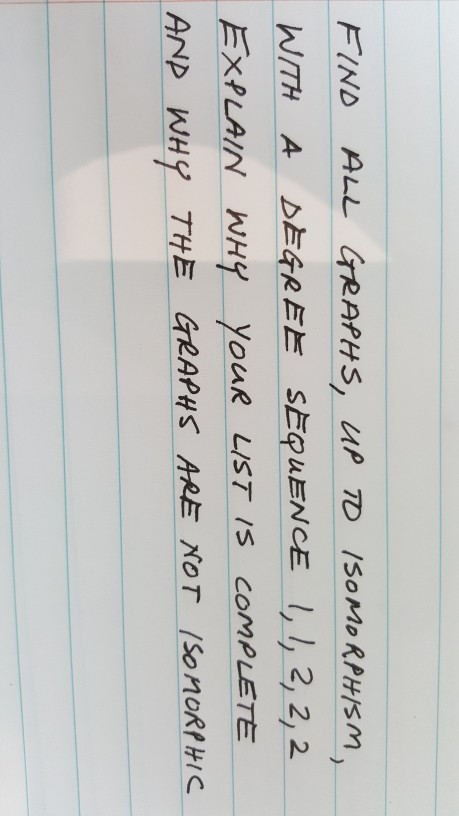 FIND ALL GRAPHS, UP TO ISOMORPHISM,
WITH A DEGREE SEQUENCE 1, 1, 2, 2, 2
EXPLAIN WHY YOUR LIST IS COMPLETE
AND WHY THE GRAPHS ARE NOT ISOMORPHIC